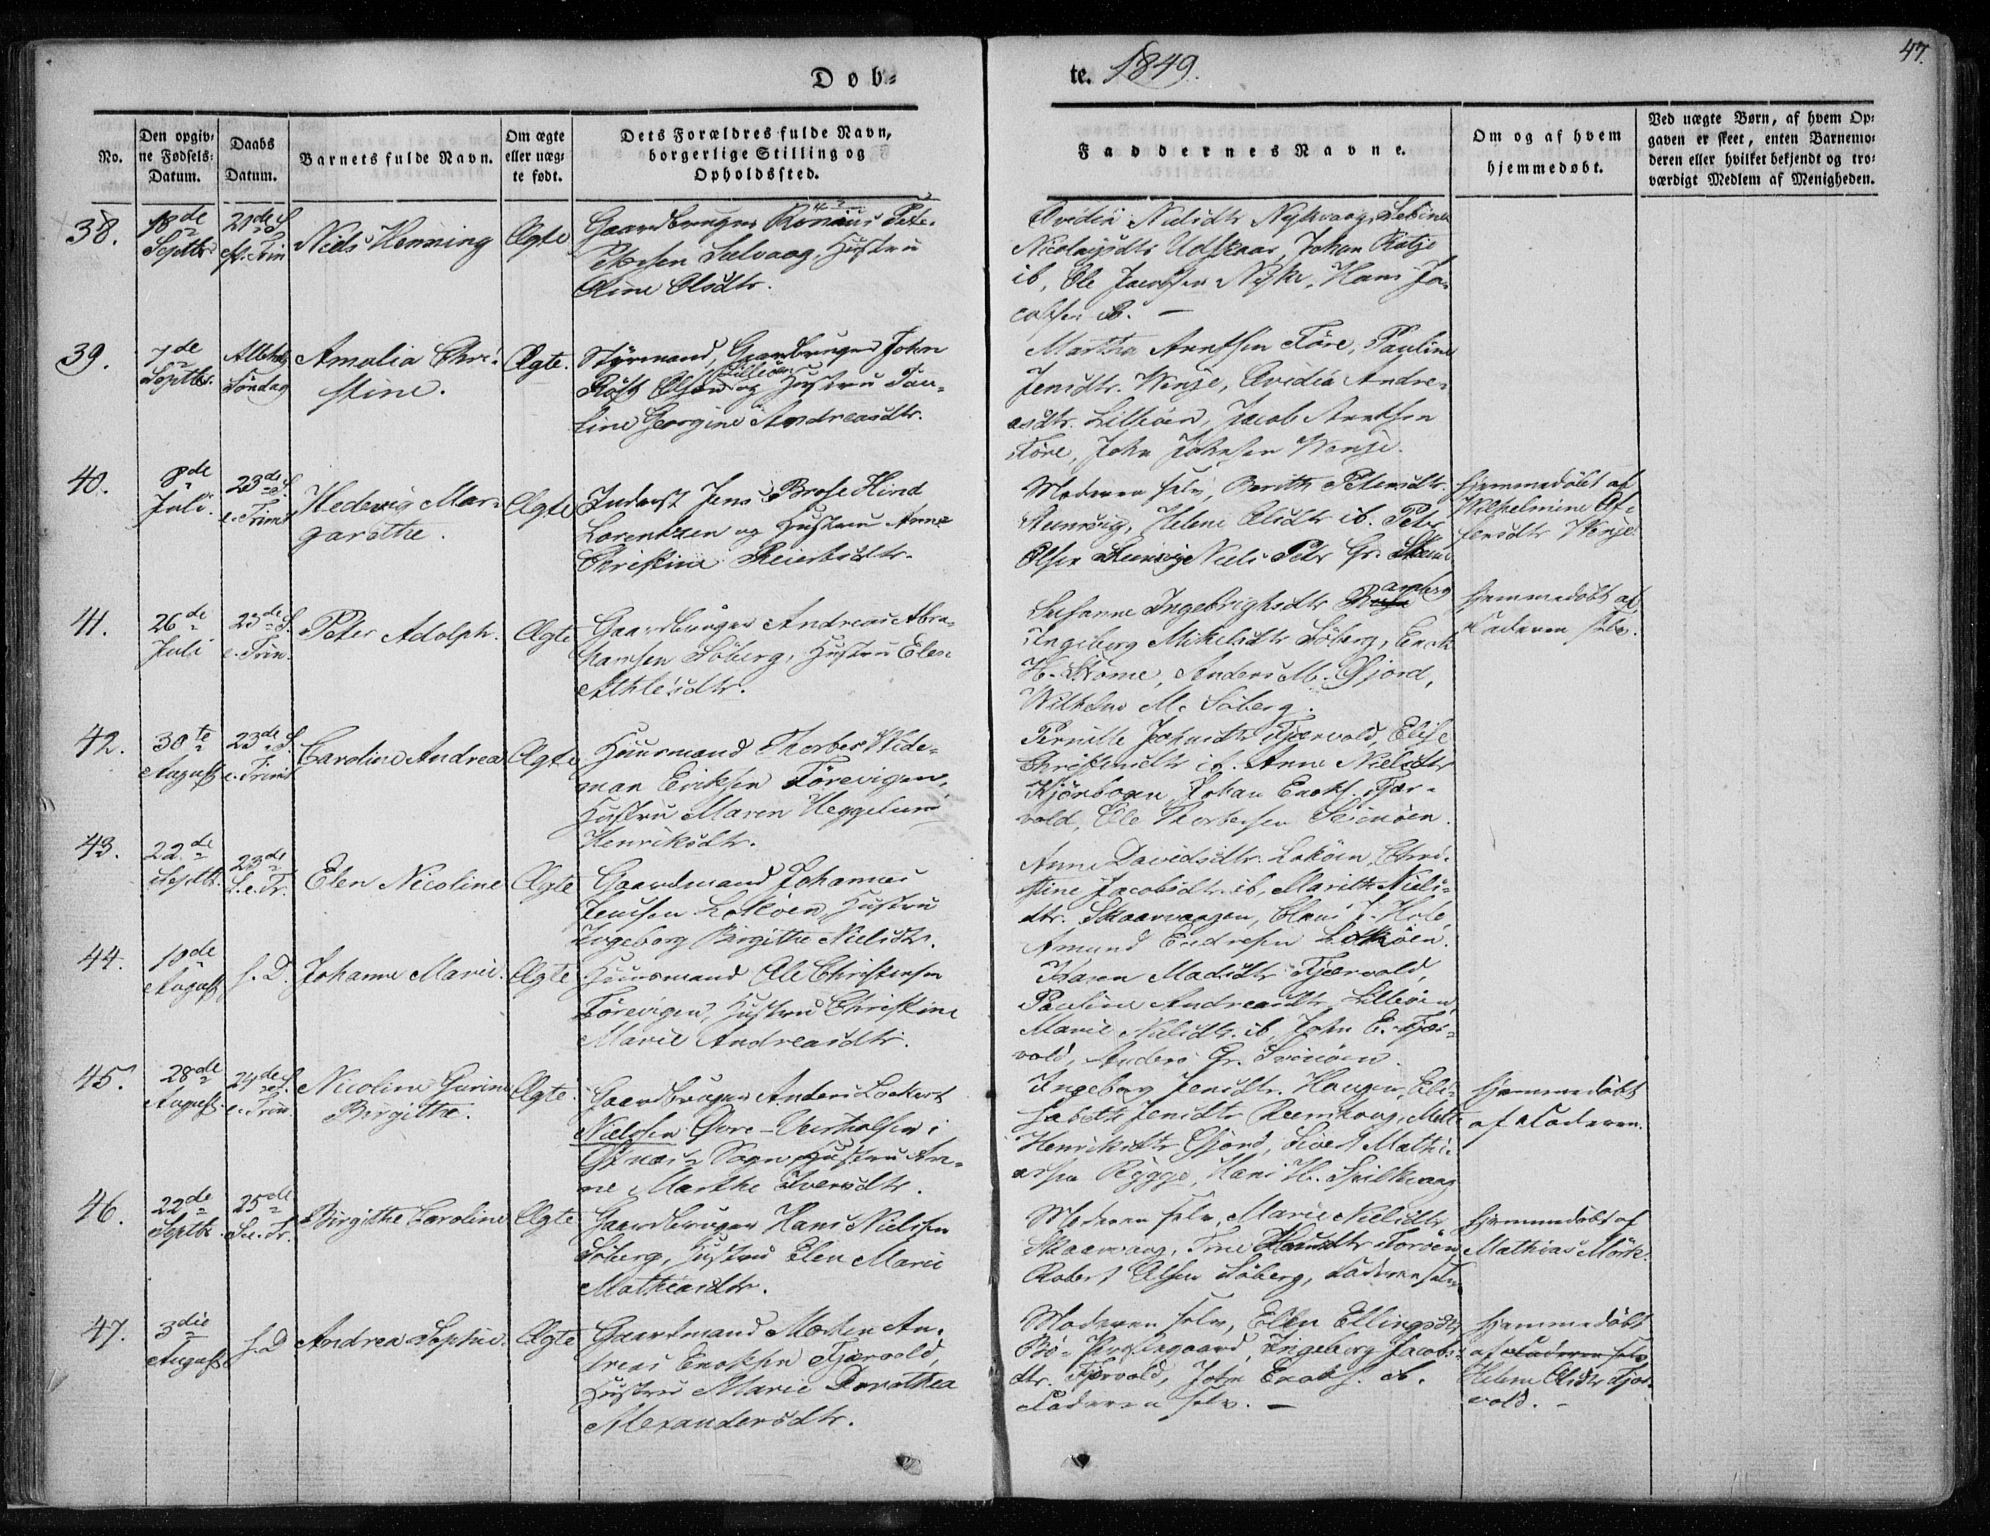 Døb-
te. 1849.
47.
No.
Den opgiv-
ne Fødsels-
Datum.
Daabs
Datum.
Barnets fulde Navn.
Om ægte
eller uæg-
te født.
Dets Forældres fulde Navn,
borgerlige Stilling og
Opholdssted.
Faddernes Navne.
Om og af hvem
hjemmedøbt.
Ved uægte Børn, af hvem Op-
gaven er skeet, enten Barnemo-
deren eller hvilket bekjendt og tro-
værdigt Medlem af Menigheden.
38.
18de
Septbr
21de S.
e. Trin
Niels Henning
Ægte
Gaardbruger Pete-
Petersen Selvaag, Hustru
Oline Olsdtr.
Ovedia Nielsdtr Nykvaag,
Nicolaisdtr Udskaar, Johan
ib, Ole Jacobsen Nyke, Hans Ja-
cobsen ib. —
39.
7de
Septbr.
Allehel.
Søndag
Amalia Chri-
stine.
Ægte.
Styrmand, Gaardbruger John
Røst Olsen Lilleøen og Hustru Pau-
line Georgine Andreasdtr.
Martha Arntsen Føre, Pauline
Jensdtr. Wenje, Ovidia Andre-
asdtr. Lilleøen, Jacob Arntsen
Føre, John Johnsen Wenje.
40.
8de
Juli.
23de S.
e. Trinit
Hedevig Mar-
garethe.
Ægte
Inderst Jens Brose Hind
Lorentzen og Hustru Anne
Christine Reiertsdtr.
Moderen selv, Berith Petersdtr.
Helene Olsdtr ib. Peter
Olsen Niels Peter
hjemmedøbt af
Wilhelmine Ol-
sensdtr Wenje.
41.
26de
Juli
23de S.
e. Trin.
Peter Adolph.
Ægte
Gaardbruger Andreas Abra-
hamsen Søberg, Hustru Elen
Athlesdtr.
Susanne Ingebrigtsdtr
Ingeborg Mikelsdtr Søberg, Enok
H. Strøme, Anders M. Gjord,
Wilhelm M. Søberg.
hjemmedøbt af
Faderen selv.
42.
30te
August
23de S.
e. Trinit
Caroline Andrea
Ægte
Huusmand Thorber Wide-
man Eriksen Førevigen,
Hustru Maren Heggelund
Henriksdtr.
Pernille Johnsdtr Fjærvold, Elise
Christensdtr ib. Anne Nielsdtr
Kjørbogen, Johan Enoks. Fjær-
vold, Ole Thorbersen Svinøen.
43.
22de
Septbr.
23de
S. e. Tr.
Elen Nicoline
Ægte
Gaardmand Johannes
Jensen Lokøen, Hustru
Ingeborg Birgithe Nielsdtr.
Anne Davidsdtr. Lokøen, Chri-
stine Jacobsdtr ib, Marith Niels-
dtr. Skaarvaagen, Claus J. Hole
Amund Endresen Lokøen.
44.
10de
August
s. D.
Johanne Marie.
Ægte
Huusmand Ole Christensen
Førevigen, Hustru Christine
Marie Andreasdtr.
Karen Madsdtr Fjærvold,
Pauline Andreasdtr. Lilleøen,
Marie Nielsdtr. ib, John E. Fjær-
vold, Anders Gr. Svinøen.
45.
28de
August.
24de S.
e. Trin.
Nicoline Gurine
Birgithe.
Ægte.
Gaardbruger Anders Lockert
Nielsen Øvre-
Øxnæs Sogn, Hustru An-
ne Marthe Iversdtr.
Ingeborg Jensdtr. Haugen, Eli-
sabeth Jensdtr Mette
Henriksdtr Gjord, Sivert Mathi-
assen Rygge, Hans H.
hjemmedøbt
af Faderen.
46.
22de
Septbr.
25de
S. e. Tr.
Birgithe Caroline
Ægte
Gaardbruger Hans Nielsen
Søberg, Hustru Elen Marie
Mathiasdtr.
Moderen selv, Marie Nielsdtr
Skaarvaag, Trine Hansdtr
Robert Olsen Søberg, Faderen selv
hjemmedøbt af
Mathias Mørk.
47.
3die
August
s. D
Andrea Sophie.
Ægte
Gaardmand An-
dreas Enoksen Fjærvold,
Hustru Marie Dorothea
Alexandersdtr.
Moderen selv, Elen Ellingsdtr
Bø-Præstegaard, Ingeborg Jacobs-
dtr. Fjærvold, John Enoks. ib.
Faderen selv. —
hjemmedøbt
af Faderen selv
Helene Olsdtr Fjær-
vold. —